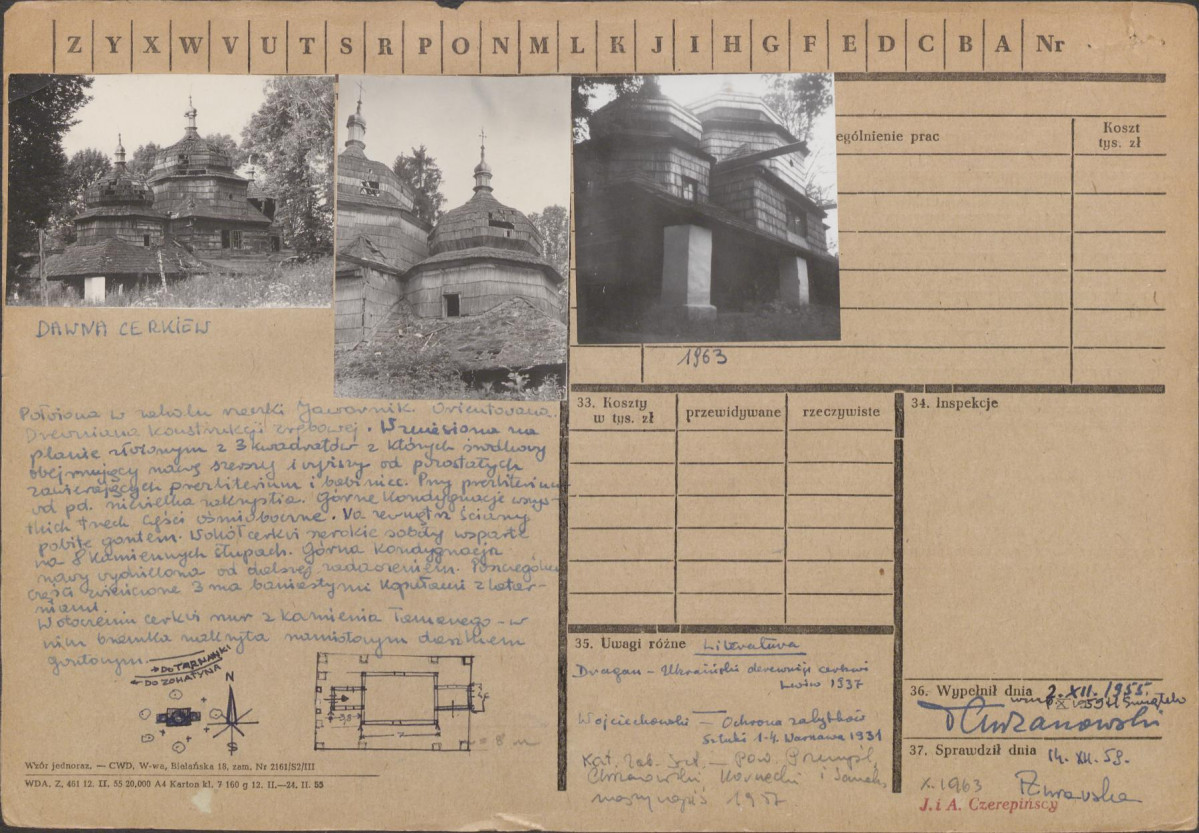 Z Y X W V U T S R P O N M L K J I H G F E D C B A Nr
ególnienie prac
Koszt
tys. zł
DAWNA CERKIEW
1963
Położona w zakolu rzeczki Jawornik. Orientowana.
Drewniana konstrukcji zrębowej. Wzniesiona na
planie złożonym z 3 kwadratów z których środkowy
obejmujący nawę szerszy i wyższy od pozostałych
zawierających prezbiterium i babiniec. Przy prezbiterium
od pd. niewielka zakrystia. Górne kondygnacje wszys-
tkich trzech części ośmioboczne. Na zewnątrz ściany
pobite gontem. Wokół cerkwi szerokie soboty wsparte
na 8 kamiennych słupach. Górna kondygnacja
nawy wydzielona od dolnej zadaszeniem. Poszczególne
części zwieńczone 3 ma baniastymi kopułami z latar-
niami.
W otoczeniu cerkwi mur z kamienia łamanego - w
nim bramka nakryta namiotowym daszkiem
gontowym.
DO TARNAWKI
DO ŻOHATYNA
N
S
8 m
Wzór jednoraz. — CWD, W-wa, Bielańska 18, zam. Nr 2161/S2/III
WDA. Z. 461 12. II. 55 20,000 A4 Karton kl. 7 160 g 12. II.—24. II. 55
33. Koszty
w tys. zł
przewidywane
rzeczywiste
34. Inspekcje
35. Uwagi różne Literatura
Dragan - Ukraiński derewniji cerkwi
Lwiw 1937
Wojciechowski - Ochrona zabytków
Sztuki 1-4. Warszawa 1931
Kat. Zab. Szt. - Pow. Przemyśl
Chrzanowski Kornecki i Samek
maszynopis 1957
36. Wypełnił dnia 2.XII.1955.
Chrzanowski
37. Sprawdził dnia 14. XII. 58.
X. 1963
J. i A. Czerepińscy